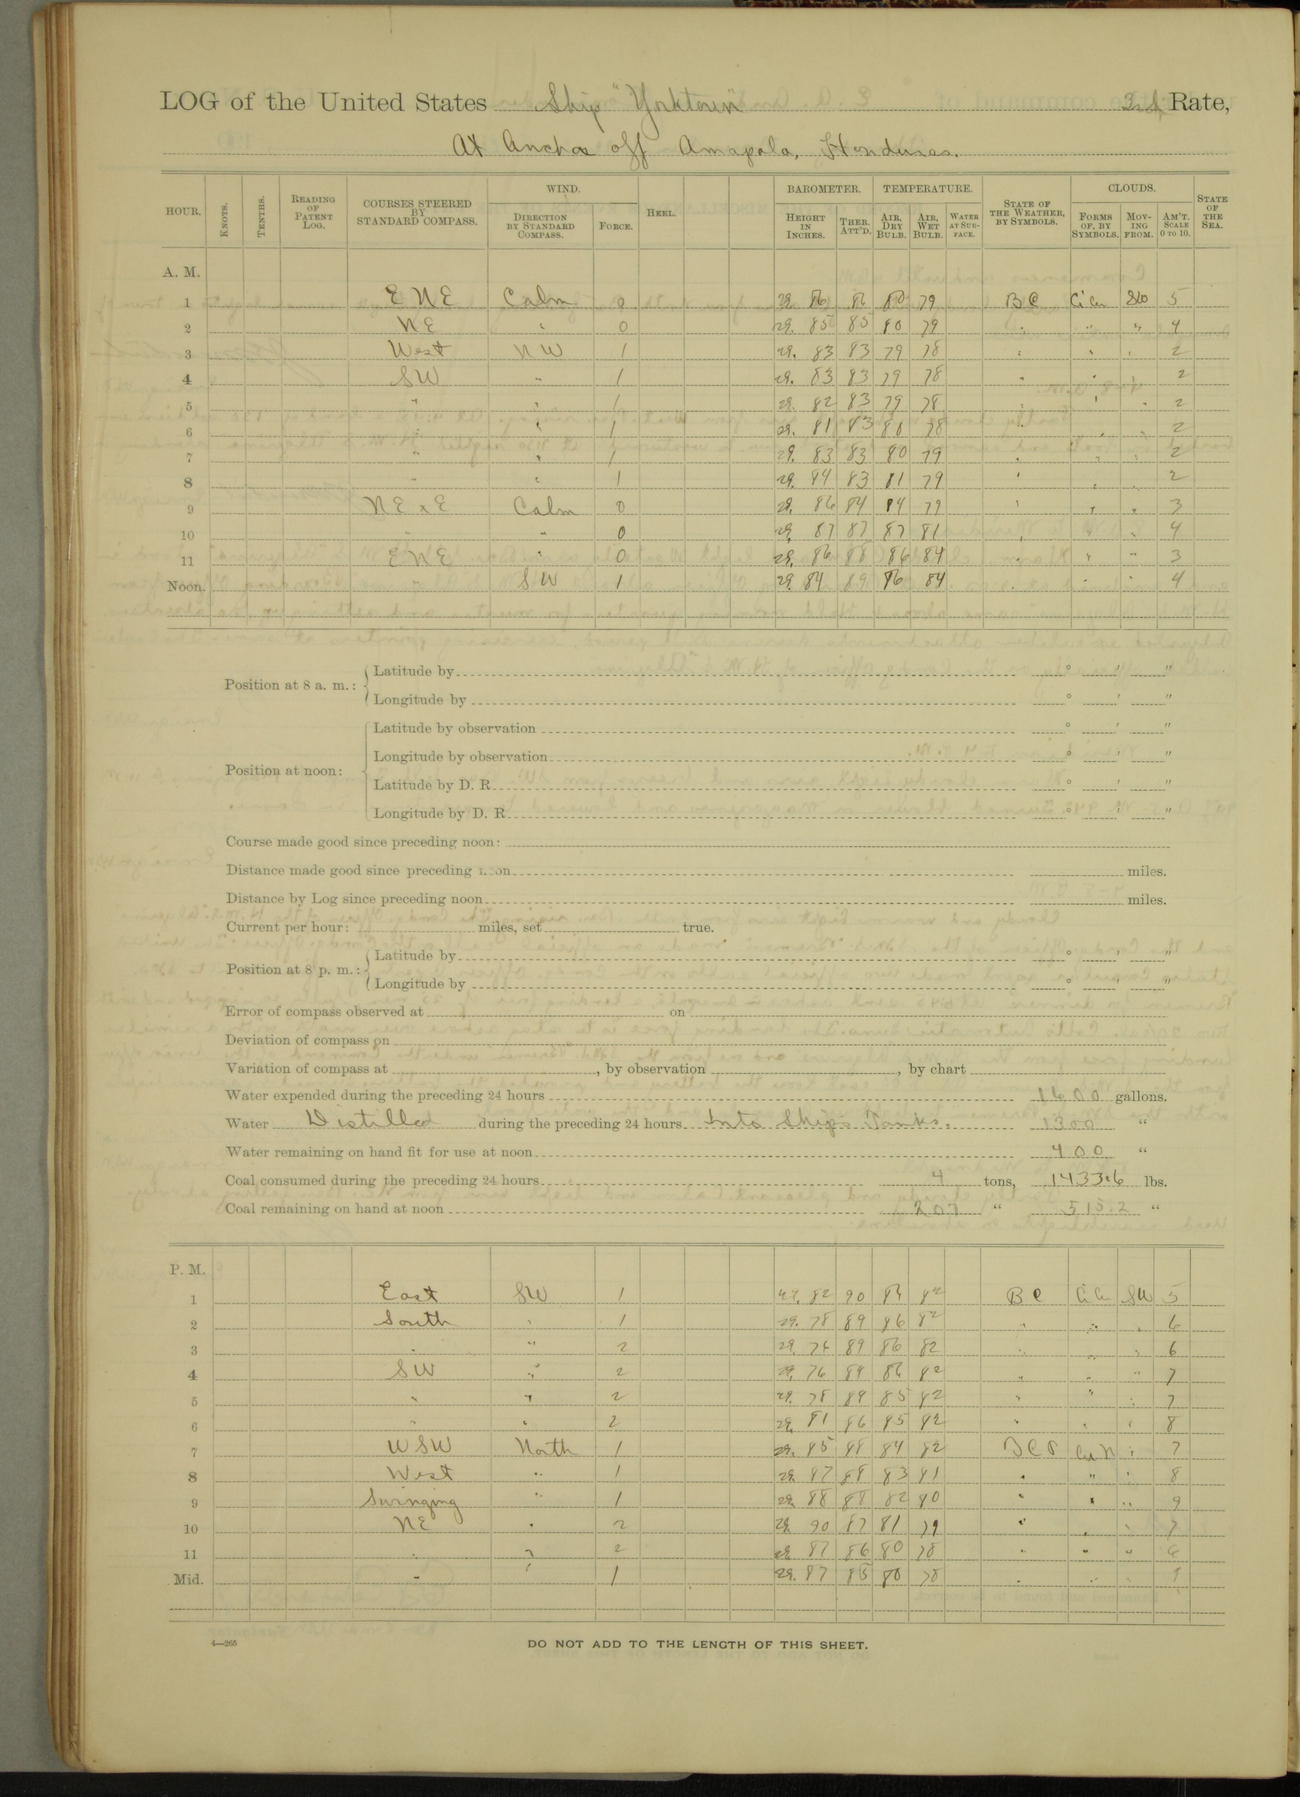 LOG of the United States Ship "Yorktown" 3rd Rate,
At Anchor off Amapala, Honduras.
HOUR. KNOTS. TENTHS. READING OF PATENT LOG. COURSES STEERED BY STANDARD COMPASS. WIND. DIRECTION BY STANDARD COMPASS. FORCE. HEEL. BAROMETER. HEIGHT IN INCHES. THER. ATT'D. TEMPERATURE. AIR, DRY BULB. AIR, WET BULB. WATER AT SUR-FACE. STATE OF THE WEATHER, BY SYMBOLS. CLOUDS. FORMS OF, BY SYMBOLS. MOV-ING FROM. AM'T. SCALE 0 TO 10. STATE OF THE SEA.
A. M.
1 ENE Calm 0 29. 86 86 80 79 BC Ci Cu SW 5
2 NE " 0 29. 85 85 80 79 " " " 4
3 West NW 1 29. 83 83 79 78 " " " 2
4 SW " 1 29. 83 83 79 78 " " " 2
5 " " 1 29. 82 83 79 78 " " " 2
6 " " 1 29. 81 83 80 78 " " " 2
7 " " 1 29. 83 83 80 79 " " " 2
8 " " 1 29. 84 83 81 79 " " " 2
9 NE x E Calm 0 29. 86 84 84 79 " " " 3
10 " " 0 29. 87 87 87 81 " " " 4
11 ENE " 0 29. 86 88 86 84 " " " 3
Noon. " SW 1 29. 84 89 86 84 " " " 4
Position at 8 a. m.: Latitude by ° ' "
Longitude by ° ' "
Position at noon: Latitude by observation ° ' "
Longitude by observation ° ' "
Latitude by D. R. ° ' "
Longitude by D. R. ° ' "
Course made good since preceding noon:
Distance made good since preceding noon miles.
Distance by Log since preceding noon miles.
Current per hour: miles, set true.
Position at 8 p. m.: Latitude by ° ' "
Longitude by ° ' "
Error of compass observed at on
Deviation of compass on
Variation of compass at , by observation , by chart
Water expended during the preceding 24 hours 1600 gallons.
Water Distilled during the preceding 24 hours Into Ship's Tanks. 1300 "
Water remaining on hand fit for use at noon 400 "
Coal consumed during the preceding 24 hours 4 tons, 1433.6 lbs.
Coal remaining on hand at noon 207 " 515.2 "
P. M.
1 East SW 1 29. 82 90 86 82 BC Ci Cu SW 5
2 South " 1 29. 78 89 86 82 " " " 6
3 " " 2 29. 74 89 86 82 " " " 6
4 SW " 2 29. 76 89 86 82 " " " 7
5 " " 2 29. 78 89 85 82 " " " 7
6 " " 2 29. 81 86 85 82 " " " 8
7 WSW North 1 29. 85 88 84 82 Cu N " 7
8 West " 1 29. 87 88 83 81 " " " 8
9 Swinging " 1 29. 88 88 82 80 " " " 9
10 NE " 2 29. 90 87 81 79 " " " 7
11 " " 2 29. 87 86 80 78 " " " 6
Mid. " " 1 29. 87 85 80 78 " " "
4—265
DO NOT ADD TO THE LENGTH OF THIS SHEET.